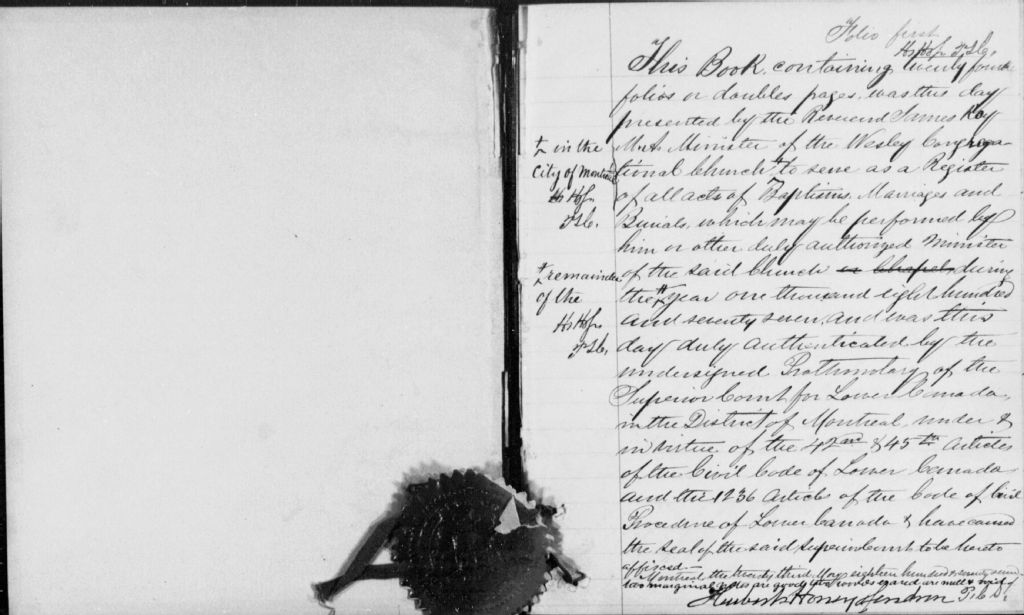 Folio first
H, H & G. P.S.C.
This Book, containing twenty four
folios or doubles pages, was this day
presented by the Reverend James Roy
M.A. Minister of the Wesley Congrega-
tional Church + to serve as a Register
of all acts of Baptisms, Marriages and
Burials, which may be performed by
him or other duly authorized Minister
of the said Church or Chapel, during
the + year one thousand eight hundred
and seventy seven, and was this
day duly authenticated by the
undersigned Prothonotary of the
Superior Court for Lower Canada,
in the District of Montreal, under &
in virtue of the 42nd & 45th Articles
of the Civil Code of Lower Canada
and the 1236 Article of the Code of Civil
Procedure of Lower Canada & have caused
the seal of the said Superior Court to be hereto
affixed—
Montreal the twenty third May eighteen hundred & seventy seven
two marginal notes are good, two words erased are null & void
+ in the
City of Montreal
+ remainder
of the